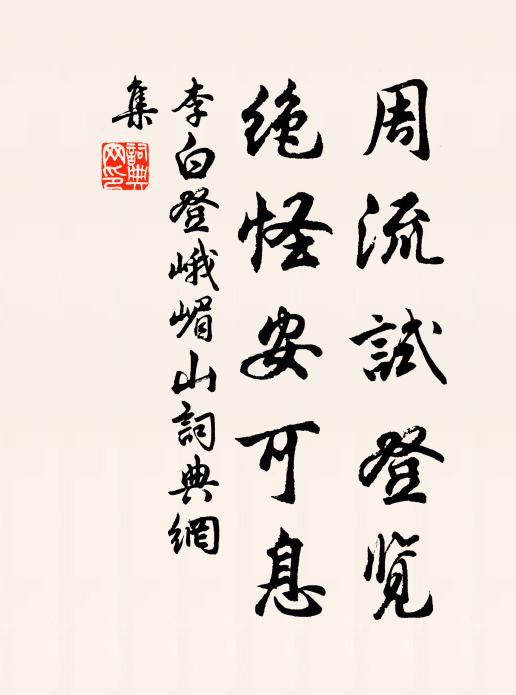 周流試登覽
绝怪安可息
李白登峨嵋山詞典網
集
詞典網印